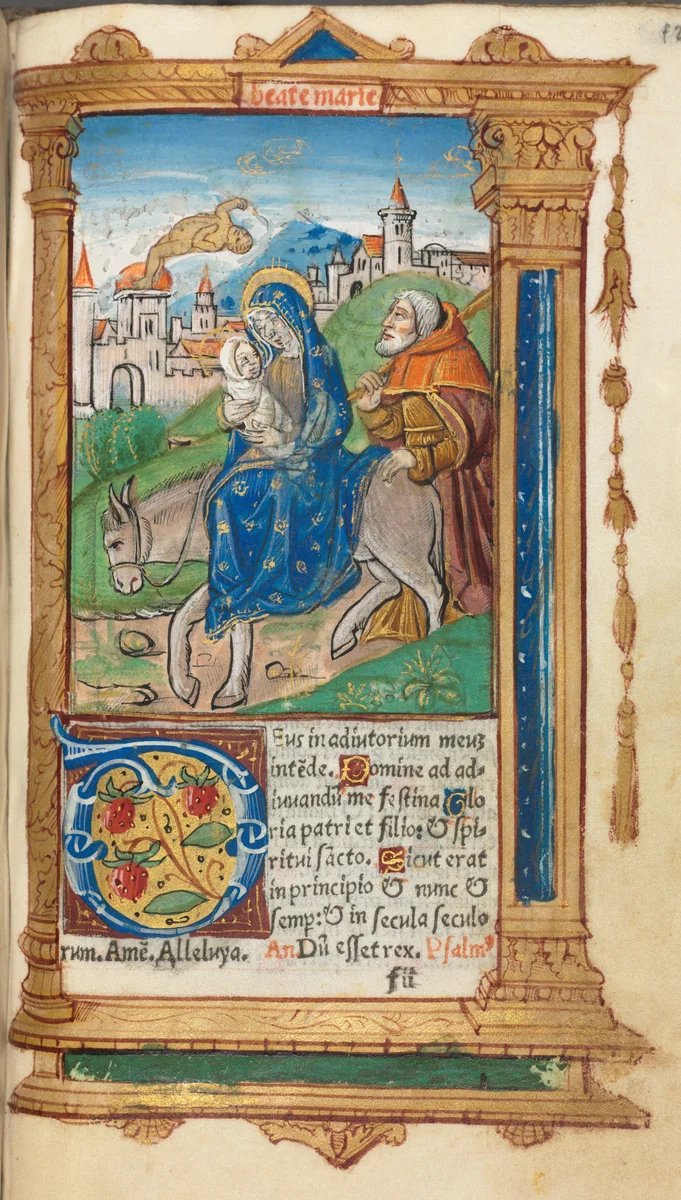 beate marie
Deus in adiutorium meuʒ
intēde. Domine ad ad-
iuuandū me festina Glo
ria patri et filio: & spi-
ritui sācto. Sicut erat
in principio & nunc &
semp: & in secula seculo
rum. Amē. Alleluya. An Dū esset rex. Psalmꝰ